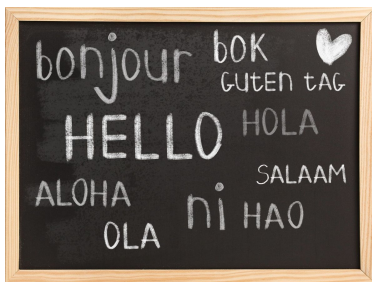 bonjour
bok
GUTEN TAG
HELLO
HOLA
SALAAM
ALOHA
ni HAO
OLA